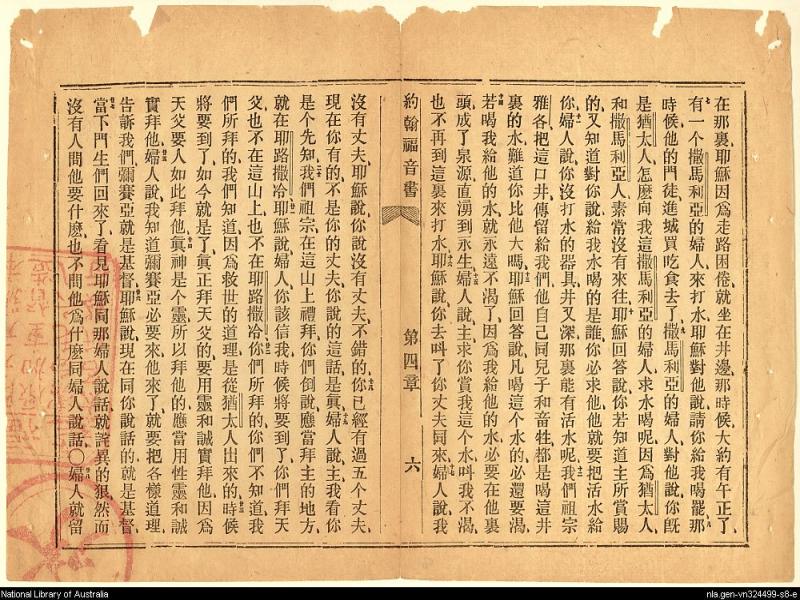 在那裏、耶穌因爲走路困倦、就坐在井邊、那時候、大約有午正了、
有一個撒馬利亞的婦人、來打水、耶穌對他說、請你給我喝罷、那
時候他的門徒進城買吃食去了、撒馬利亞的婦人、對他說、你旣
是猶太人、怎麽向我這撒馬利亞的婦人、求水喝呢、因爲猶太人、
和撒馬利亞人、素常沒有來往、耶穌回答說、你若知道主所賞賜
的、又知道對你說給我水喝的是誰、你必求他、他就要把活水給
你、婦人說、你沒打水的器具、井又深、那裏能有活水呢、我們祖宗
雅各把這口井傳留給我們、他自己同兒子和畜牲、都是喝這井
裏的水、難道你比他大嗎、耶穌回答說、凡喝這個水的、必還要渴、
若喝我給他的水、就永遠不渴了、因爲我給他的水、必要在他裏
頭、成了泉源、直湧到永生、婦人說、主、求你賞我這個水、叫我不渴、
也不再到這裏來打水、耶穌說、你去叫了你丈夫同來、婦人說、我
約翰福音書 第四章 六
沒有丈夫、耶穌說、你說沒有丈夫、不錯的、你已經有過五個丈夫、
現在你有的、不是你的丈夫、你說的這話是眞、婦人說、主、我看你
是個先知、我們祖宗在這山上禮拜、你們倒說、應當拜主的地方、
就在耶路撒冷、耶穌說、婦人、你該信我、時候將要到了、你們拜天
父、也不在這山上、也不在耶路撒冷、你們所拜的、你們不知道、我
們所拜的、我們知道、因爲救世的道理、是從猶太人出來的、時候
將要到了、如今就是了、眞正拜天父的、要用靈和誠實拜他、因爲
天父要人如此拜他、眞神是個靈、所以拜他的、應當用性靈和誠
實拜他、婦人說、我知道彌賽亞必要來、他來了、就要把各樣道理
告訴我們、彌賽亞就是基督、耶穌說、現在同你說話的、就是基督、
當下門生們回來了、看見耶穌同那婦人說話、就詫異的狠、然而
沒有人問他要什麽、也不問他爲什麽同婦人說話、○婦人就留
National Library of Australia
nla.gen-vn324499-s8-e